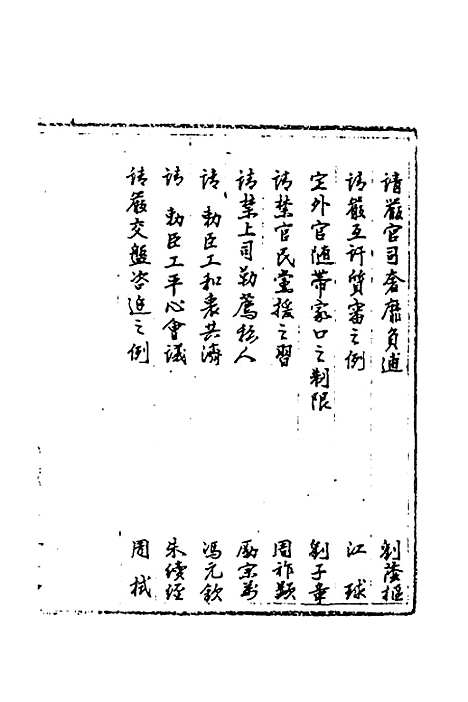 請嚴官司奢靡負逋 劉蔭樞
請嚴互訐質審之例 江球
定外官隨帶家口之制限 劉子章
請禁官民黨援之習 周祚顯
請禁上司勒薦私人 勵宗萬
請 勅臣工和衷共濟 馮元欽
請 勅臣工平心會議 朱續經
請嚴交盤咨追之例 周栻